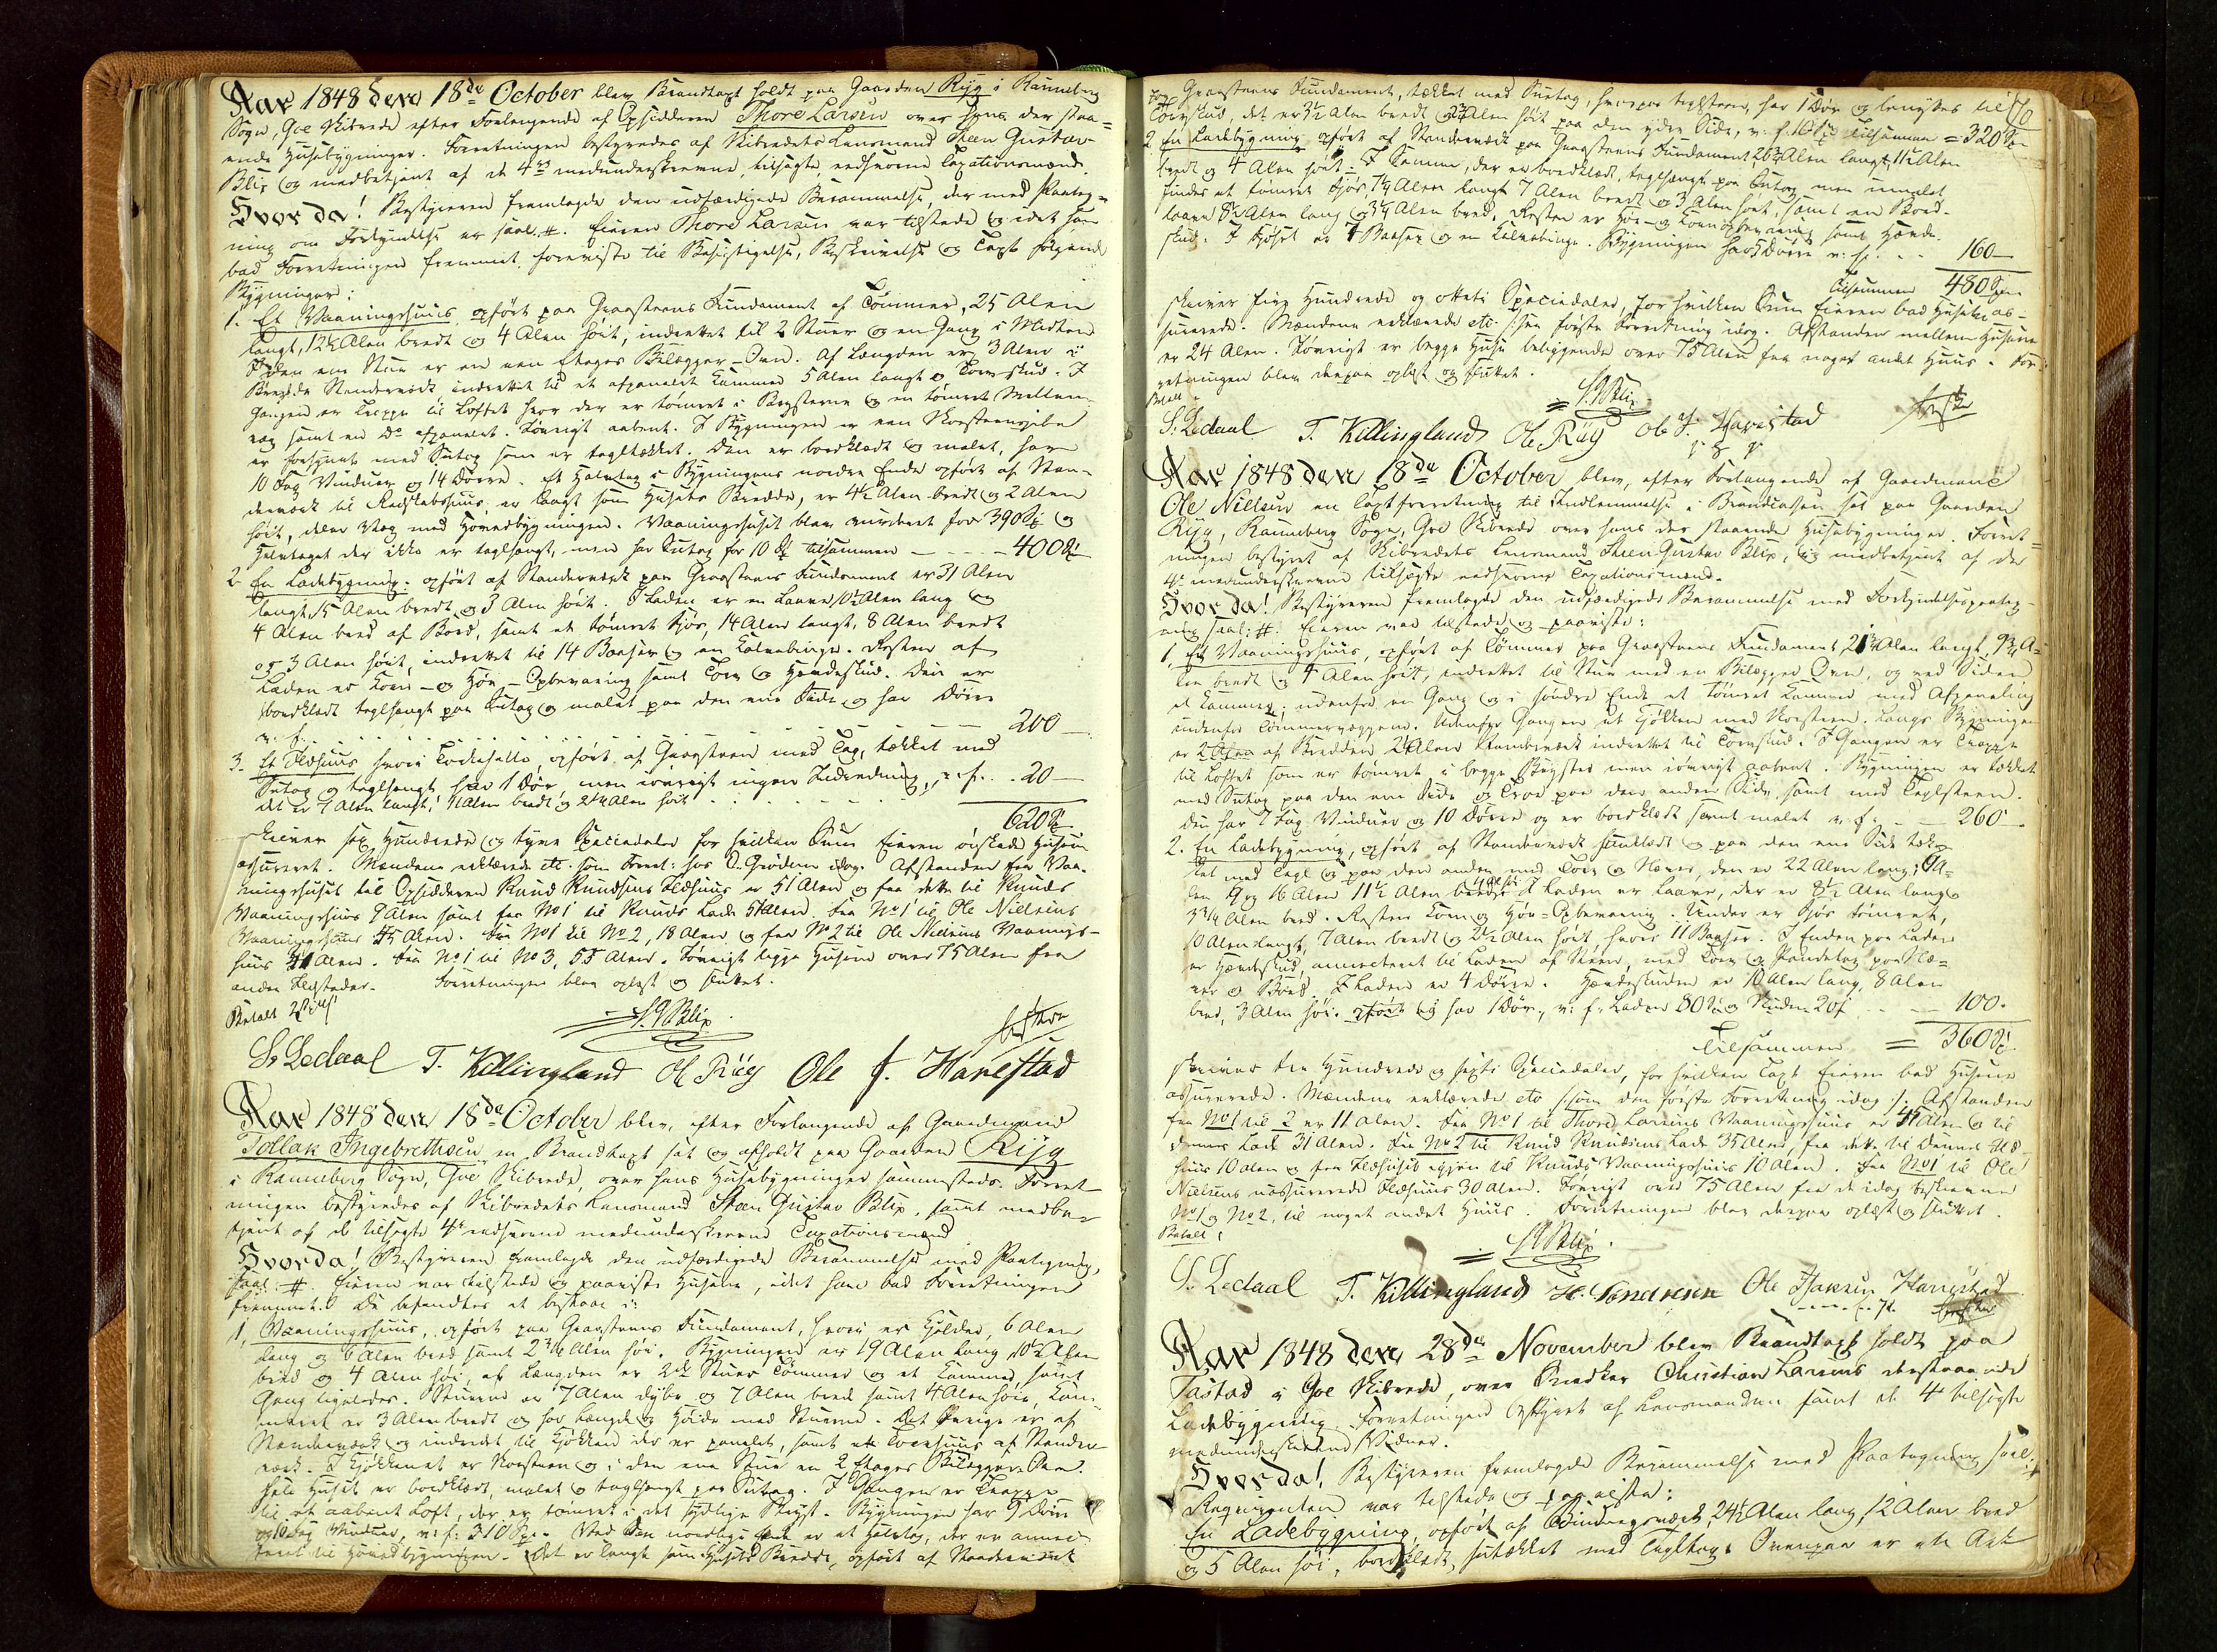 Aar 1848 den 18de October blev Brandtaxt holdt paa Gaarden Ryg i Randeberg
Sogn, Goe Skibrede efter Forlangende af Opsidderen Thore Larsen over hans der staa-
ende Huusebygninger. Forretningen bestyredes af Skibredets Lensmand Steen Gustav
Blix og medbetjent af de 4re medunderskrevne, tilsagte, eedsvorne Taxationsmænd.
Hvor da! Bestyreren fremlagde den udfærdigede Berammelse, der med Paateg-
ning om Forkyndelse er saal. #. Eieren Thore Larsen var tilstede og idet han
bad Forretningen fremmet, foreviste til Besigtigelse, Beskrivelse og Taxt følgende
Bygninger:
1. Et Vaaningshuus, opført paa Graasteens Fundament af Tømmer, 25 Alen
langt, 12½ Alen bredt og 4 Alen høit, indrettet til 2 Stuer og en Gang i Midten
I den ene Stue er en een Etages Bilægger-Ovn. Af Længden er 3 Alen i
Bredde Standerværk indrettet til et afpanelet Kammer 5 Alen langt og Torvskud. I
Gangen er Trappe til Loftet hvor der er tømret i Brysterne og en tømret Mellem-
væg samt en do afpanelet. Iøvrigt aabent. I Bygningen er een Skorsteenspibe
er forsynet med Sutag som er tegltækket. Den er bordklædt og malet, har
10 Fag Vinduer og 14 Dørre. Et Halvtag i Bygningens nordre Ende opført af Stan-
derværk til Redskabshuus, er langt som Husets Bredde, er 4½ Alen bredt og 2 Alen
høit, deler Væg med Hovedbygningen. Vaaningshuset blev vurderet for 390 Sp og
Halvtaget der ikke er teglhængt, men har Sutag for 10 Sp tilsammen - - - 400 Sp
2 En Ladebygning, opført af Standerværk paa Graasteens Fundament er 31 Alen
langt, 15 Alen bredt og 3 Alen høit. I Laden er en Laave 10½ Alen lang og
4 Alen bred af Bord, samt et tømret Fjøs, 14 Alen langt, 8 Alen bredt
og 3 Alen høit, indrettet til 14 Baaser og en Kalvebinge. Resten af
Laden er Korn- og Høe-Opbevaring samt Torv og Hændeskud. Den er
bordklædt teglhængt paa Sutag og malet paa den ene Side og har Dørre
v. f. . . . . . 200 -
3. Et Ildhuus hvori Torkehelle, opført af Graasteen med Tag, tækket med
Sutag og teglhængt har 1 Dør men iøvrigt ingen Indredning, v. f. . 20 -
det er 9 Alen langt, Alen bredt og 2¼ Alen høit . . . . .
620 Sp
skriver sex Hundrede og tyve Speciedaler for hvilken Sum Eieren ønskede Husene
assureret. Mændene erklærede etc. som Forret: hos O. Grødem idag. Afstanden fra Vaa-
ningshuset til Opsidderen Knud Knudsens Ildhuus er 51 Alen og fra dette til Knuds
Vaaningshuus 9 Alen samt fra No 1 til Knuds Lade 51 Alen. Fra No 1 til Ole Nielsens
Vaaningshuus 45 Alen. Fra No 1 til No 2, 18 Alen og fra No 2 til Ole Nielsens Vaanings-
huus 31 Alen. Fra No 1 til No 3, 55 Alen. Iøvrigt ligge Husene over 75 Alen fra
andre Ildsteder. Forretningen blev oplæst og sluttet.
Betalt
S G Blix
S. Ledaal T. Killingland Ole Ryg Ole J. Harestad
Aar 1848 den 18de October blev, efter Forlangende af Gaardmand
Tollak Ingebrethsen en Brandtaxt sat og afholdt paa Gaarden Ryg
i Randeberg Sogn, Goe Skibrede, over hans Huusebygninger sammesteds. Forret-
ningen bestyredes af Skibredets Lensmand Steen Gustav Blix, samt medbe-
tjent af de tilsagte 4re eedsvorne medunderskrevne Taxationsmænd
Hvor da! Bestyreren fremlagde den udfærdigede Berammelse med Paategning,
saal. #. Eieren var tilstede og paaviste Husene, idet han bad Forretningen
fremmet. De befandtes at bestaae i:
1, Vaaningshuus, opført paa Graasteens Fundament, hvori er Kjelder, 6 Alen
lang og 6 Alen bred samt 2¾ Alen høi. Bygningen er 19 Alen lang 10½ Alen
bred og 4 Alen høi, af Længden er 2de Stuer Tømmer og et Kammer, samt
Gang ligeledes. Stuerne er 7 Alen dybe og 7 Alen bred samt 4 Alen høie, Kam-
meret er 3 Alen bredt og har Længde og Høide med Stuerne. Det Øvrige er af
Standerværk og indredet til Kjøkken der er panelet, samt et Torvhuus af Stander-
værk. I Kjøkkenet er Skorsteen og i den ene Stue en 2 Etages Bilægger Ovn.
Hele Huset er bordklædt, malet og teglhængt paa Sutag. I Gangen er Trappe
til et aabent Loft, der er tømret i det sydlige Bryst. Bygningen har 9 Dørre
og 10 Fag Vinduer, v. f: 310 Sp. Ved den nordlige Ende er et Halvtag, der er annec-
teret til Hovedbygningen. Det er langt som Husets Bredde, opført af Standerværk
70
paa Graasteens Fundament, tækket med Sutag, hvorpaa teglsteen, har 1 Dør og benyttes til
Torvskud, det er 3½ Alen bredt 2¾ Alen høit paa den ydre Side, v. f. 10 Sp tilsammen = 320 Sp
2. En Ladebygning opført af Standerværk paa Graasteens Fundament 26¾ Alen langt, 11½ Alen
bredt og 4 Alen høit. I Samme, der er bordklædt, teglhængt paa Sutag men umalet
findes et tømret Fjøs, 7½ Alen langt 7 Alen bredt og 3 Alen høit, samt en Bord-
laave 8½ Alen lang og 3¼ Alen bred. Resten er Høe- og Kornopbevaring samt Hænde-
skud. I Fjøset er 7 Baaser og en Kalvebinge. Bygningen har 5 Dørre v. f. - - 160 -
Tilsammen 480 Sp
skriver fire Hundrede og otteti Speciedaler, for hvilken Sum Eieren bad Husene as-
surerede. Mændene erklærede etc. som første Forretning idag. Afstanden mellem Husene
er 24 Alen. Iøvrigt er begge Huse beliggende over 75 Alen fra noget andet Huus. For-
retningen blev derpaa oplæst og sluttet.
Betalt
S G Blix
S. Ledaal T. Killingland Ole Ryg Ole J. Harestad
Aar 1848 den 18de October blev, efter Forlangende af Gaardmand
Ole Nielsen en Taxtforretning til Indlemmelse i Brandkassen sat paa Gaarden
Ryg, Randeberg Sogn, Goe Skibrede over hans der staaende Huusebygninger. Forret-
ningen bestyret af Skibredets Lensmand Steen Gustav Blix, og medbetjent af de
4re medunderskrevne tilsagte eedsvorne Taxationsmænd.
Hvor da! Bestyreren fremlagde den udfærdigede Berammelse med Forkyndelsespaateg-
ning saal: #. Eieren var tilstede og paaviste:
1, Et Vaaningshuus, opført af Tømmer paa Graasteens Fundament, 21¾ Alen langt, 9¾ A-
len bredt og 4 Alen høit, indrettet til Stue med en Bilægger Ovn, og ved Siden
et Kammer; udenfra en Gang og i søndre Ende et tømret Kammer med Afpaneling
indenfor Tømmervæggene. Udenfor Gangen et Kjøkken med Skorsteen. Langs Bygningen
er 2 Alen af Bredden 2½ Alen Standerværk indrettet til Torvskud. I Gangen er Trappe
til Loftet som er tømret i begge Bryster men iøvrigt aabent. Bygningen er tækket
med Sutag paa den ene Side og Torv paa den anden Side, samt med Teglsteen.
Den har 7 Fag Vinduer og 10 Dørre og er bordklædt samt malet v. f. - - 260 -
2. En Ladebygning, opført af Standerværk, suklædt og paa den ene Side tæk-
ket med Tegl og paa den anden med Torv og Næver, den er 22 Alen lang; Ga-
len 9 og 16 Alen 11½ Alen bred I Laden er Laave, der er 8½ Alen lang og
3¾ Alen bred. Resten Korn og Høe-Opbevaring. Under er Fjøs tømret,
10 Alen langt, 7 Alen bredt og 2½ Alen høit, hvori 11 Baaser. I Enden paa Laden
er Hændeskud, annecteret til Laden af Steen, med Torv og Pandetag paa Næ-
ver og Bord. I Laden er 4 Dørre. Hændeskuden er 10 Alen lang, 8 Alen
bred, 3 Alen høi. og har 1 Dør, v: f. Laden 80 Sp og Skuden 20 f . . - 100.
Tilsammen = 360 Sp.
skriver tre Hundrede og sexti Speciedaler, for hvilken Taxt Eieren bad Husene
assurerede. Mændene erklærede etc (som den første Forretning idag :). Afstanden
fra No 1 til 2 er 11 Alen. Fra No 1 til Thore Larsens Vaaningshuus er 45 Alen og til
dennes Lade 31 Alen. Fra No 2 til Knud Knudsens Lade 35 Alen, fra dette til dennes Ild-
huus 10 Alen og fra Ildhuset igjen til Knuds Vaaningshuus 10 Alen. Fra No 1 til Ole
Nielsens uassurerede Ildhuus 30 Alen. Iøvrigt over 75 Alen fra de idag beskrevne
No 1 og No 2, til noget andet Huus. Forretningen blev derpaa oplæst og sluttet.
Betalt
S G Blix.
S. Ledaal T. Killingland Ole Isaksen Harestad
Aar 1848 den 28de November blev Brandtaxt holdt paa
Tastad i Goe Skibrede, over Snedker Christian Larsens derstaaende
Ladebygning. Forretningen bestyret af Lensmanden samt de 4re tilsagte
medunderskrevne Vidner.
Hvor da! Bestyreren fremlagde Berammelse med Paategning saal. #
Reqvirenten var tilstede og paaviste:
En Ladebygning, opført af Bindingsværk, 24½ Alen lang, 12 Alen bred
og 5 Alen høi, bordklædt, sutækket med Tegltag. Ovenpaa er ete Ark